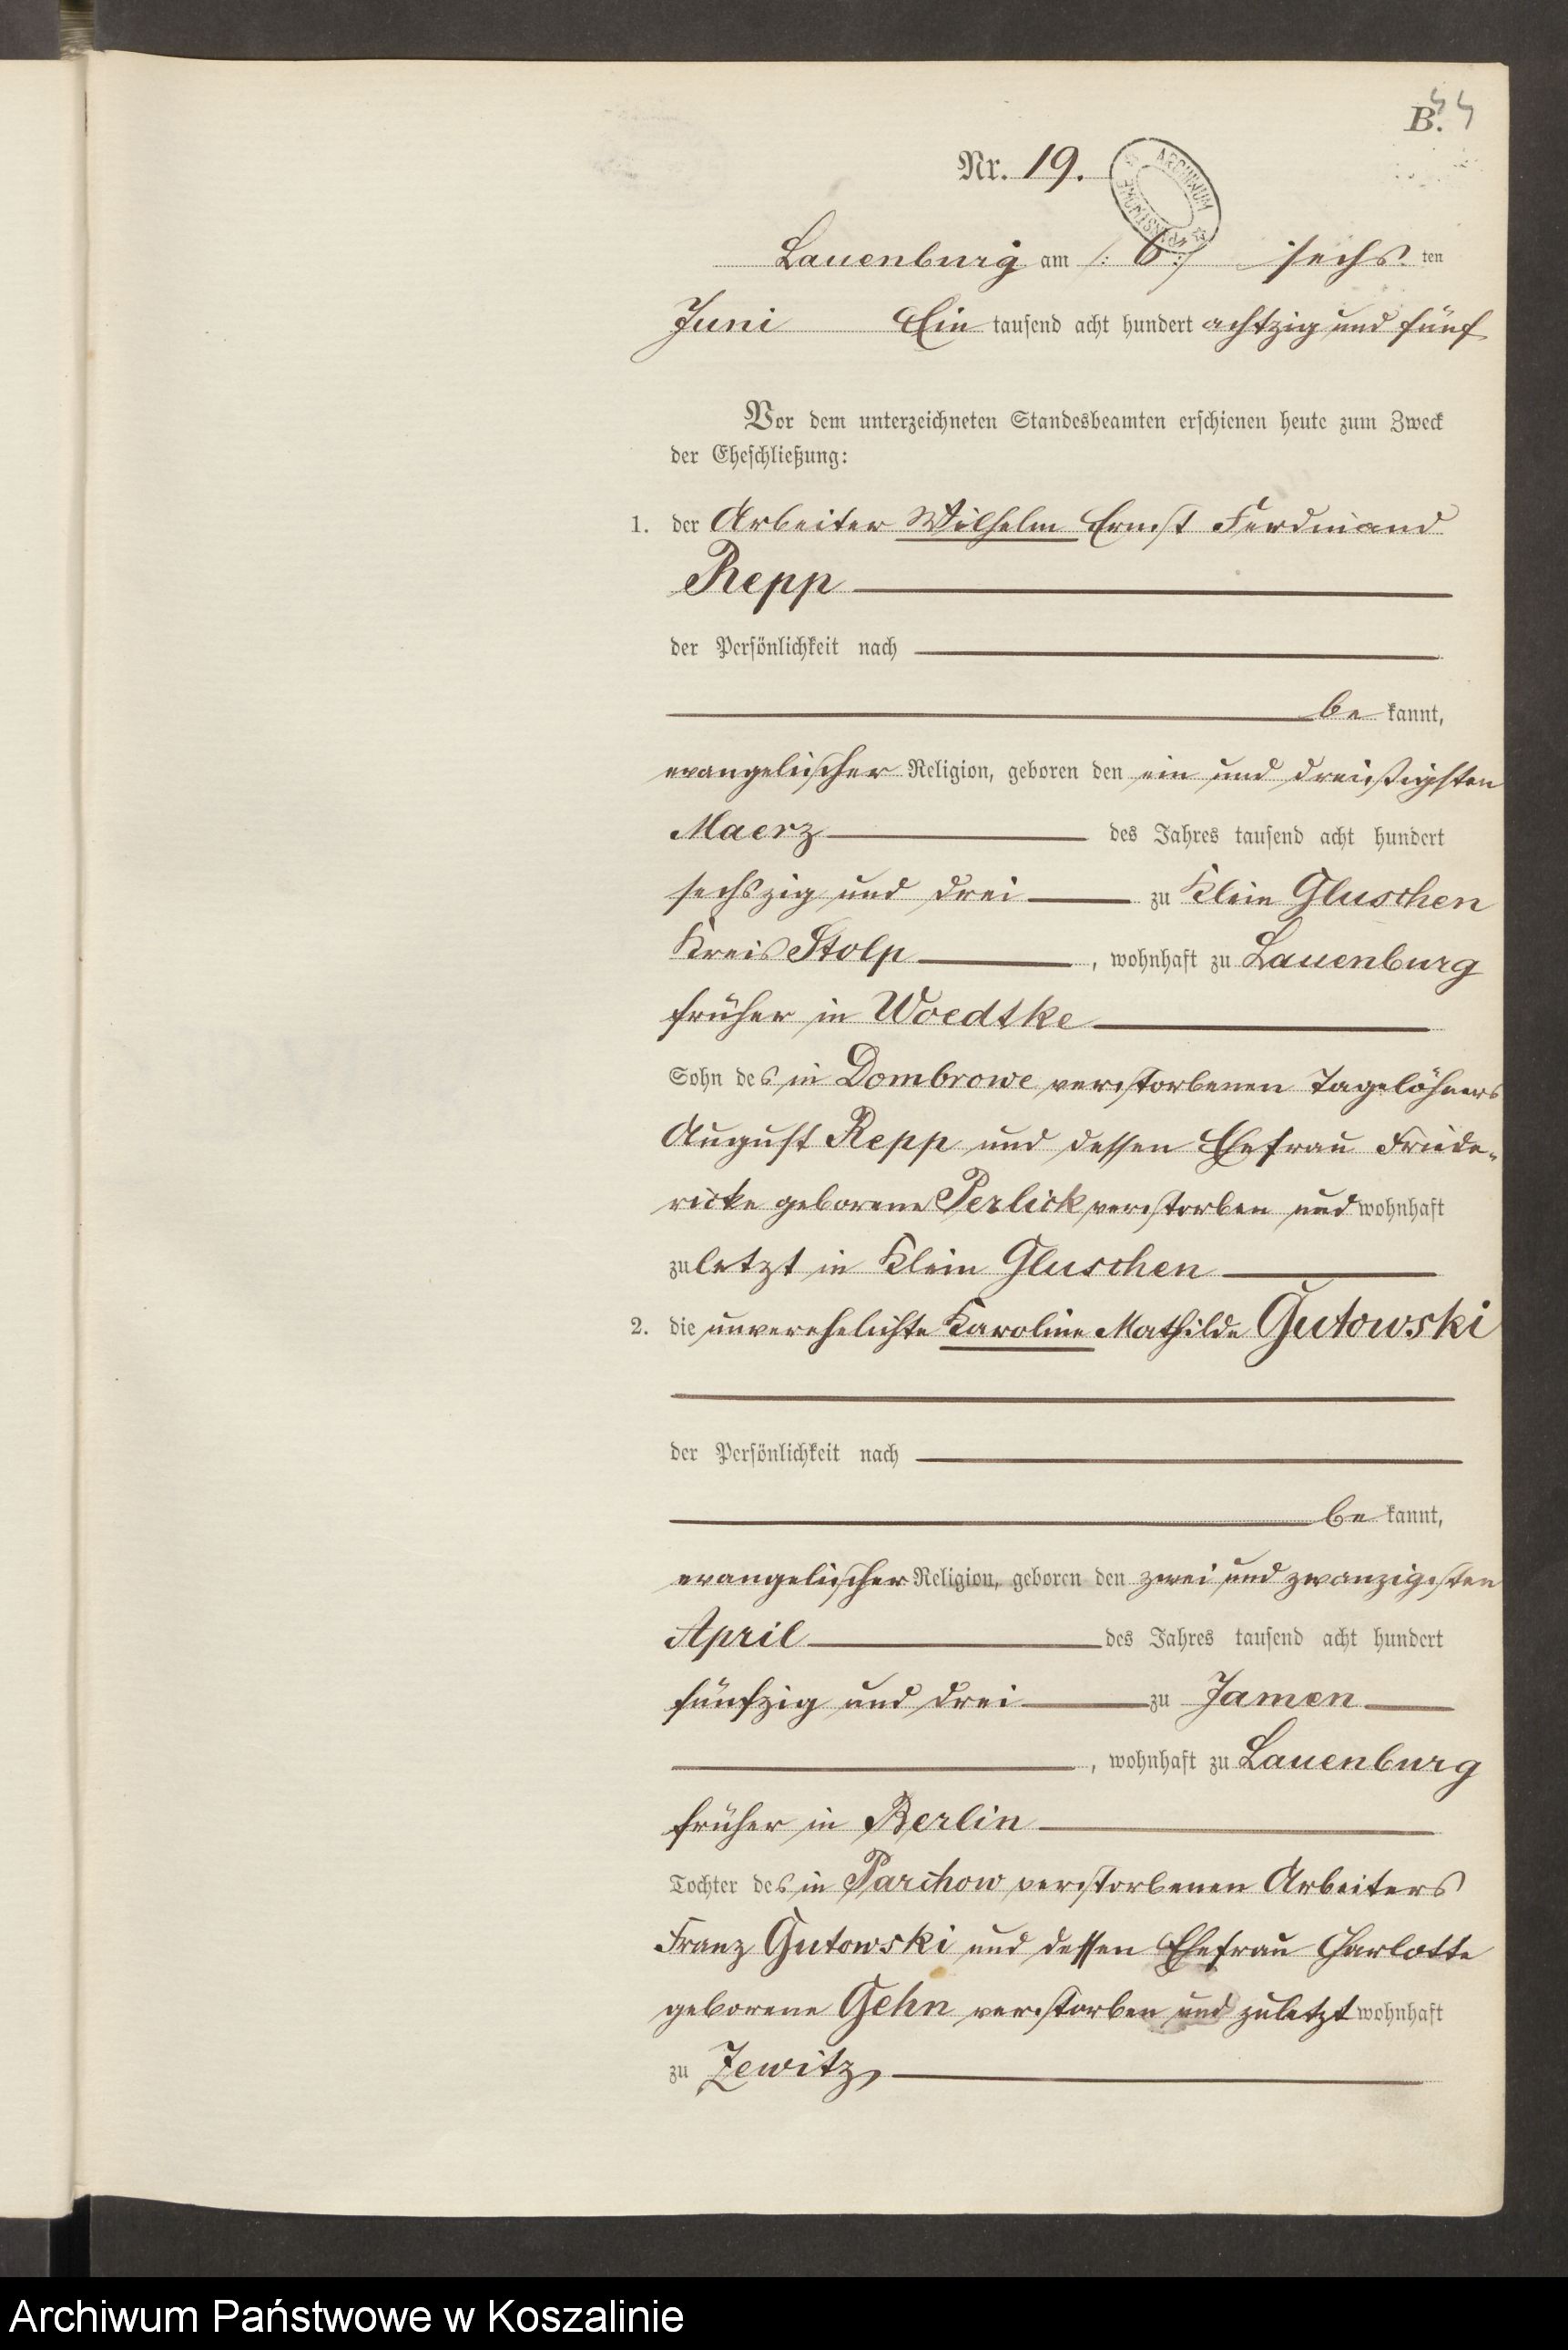 B.
44
Nr. 19.
ARCHIWUM PAŃSTWOWE
Lauenburg am /: 6 :/ sechs ten
Juni Ein tausend acht hundert achtzig und fünf
Vor dem unterzeichneten Standesbeamten erschienen heute zum Zweck
der Eheschließung:
1. der Arbeiter Wilhelm Ernst Ferdinand
Repp
der Persönlichkeit nach
be kannt,
evangelischer Religion, geboren den ein und dreißigsten
Maerz des Jahres tausend acht hundert
sechszig und drei zu Klein Gluschen
Kreis Stolp, wohnhaft zu Lauenburg
früher in Woedtke
Sohn des in Dombrowe verstorbenen Tagelöhners
August Repp und dessen Ehefrau Friede-
ricke geborene Perlick verstorben und wohnhaft
zuletzt in Klein Gluschen
2. die unverehelichte Karoline Mathilde Gutowski
der Persönlichkeit nach
be kannt,
evangelischer Religion, geboren den zwei und zwanzigsten
April des Jahres tausend acht hundert
fünfzig und drei zu Jamen
, wohnhaft zu Lauenburg
früher in Berlin
Tochter des in Parchow verstorbenen Arbeiters
Franz Gutowski und dessen Ehefrau Charlotte
geborene Gehn verstorben und zuletzt wohnhaft
zu Zewitz,
Archiwum Państwowe w Koszalinie